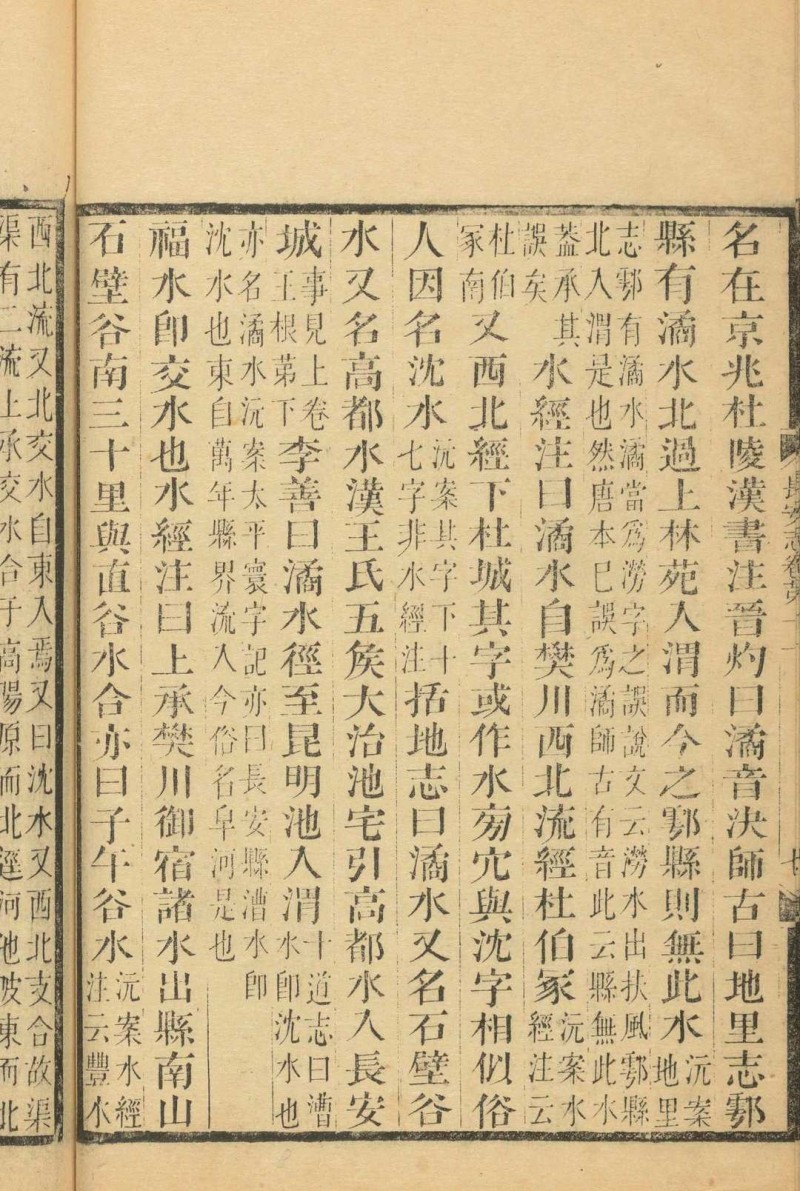 長安志卷
名在京兆杜陵漢書注晉灼曰潏音決師古曰地里志鄠
縣有潏水北過上林苑入渭而今之鄠縣則無此水沅案地里
志鄠有潏水潏當爲澇字之誤說文云澇水出扶風鄠縣
北入渭是也然唐本已誤爲潏師古有音此云縣無此水
蓋承其誤矣水經注曰潏水自樊川西北流經杜伯冢沅案水經注云
杜伯冢南又西北經下杜城其字或作水旁穴與沈字相似俗
人因名沈水沅案其字下十七字非水經注括地志曰潏水又名石壁谷
水又名高都水漢王氏五矦大治池宅引高都水入長安
城事見上卷王根第下李善曰潏水徑至昆明池入渭十道志曰漕水卽沈水也
亦名潏水沅案太平寰宇記亦曰長安縣漕水卽
沈水也東自萬年縣界流入今俗名皁河是也
福水卽交水也水經注曰上承樊川御宿諸水出縣南山
石壁谷南三十里與直谷水合亦曰子午谷水沅案水經注云豐水
西北流又北交水自東入焉又曰沈水又西北支合故渠
渠有二流上承交水合于高陽原而北逕河池陂東而北